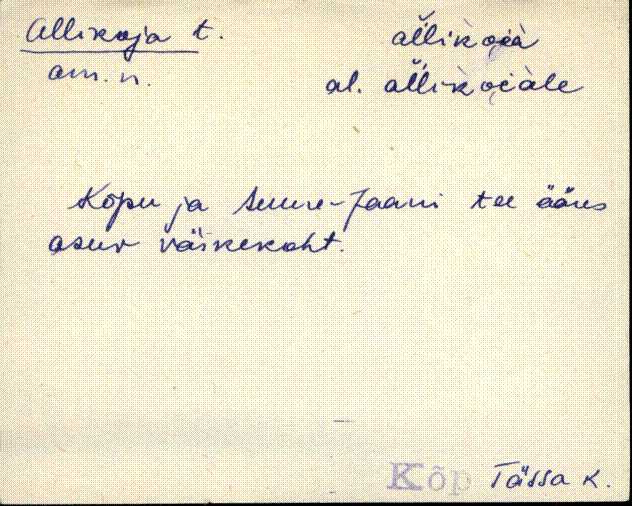 Allikoja t. al̆likòi̯à
am. n. al. al̆likòi̯àle
Kõpu ja Suure-Jaani tee ääres
asuv väikekoht.
Kõp Tässa k.